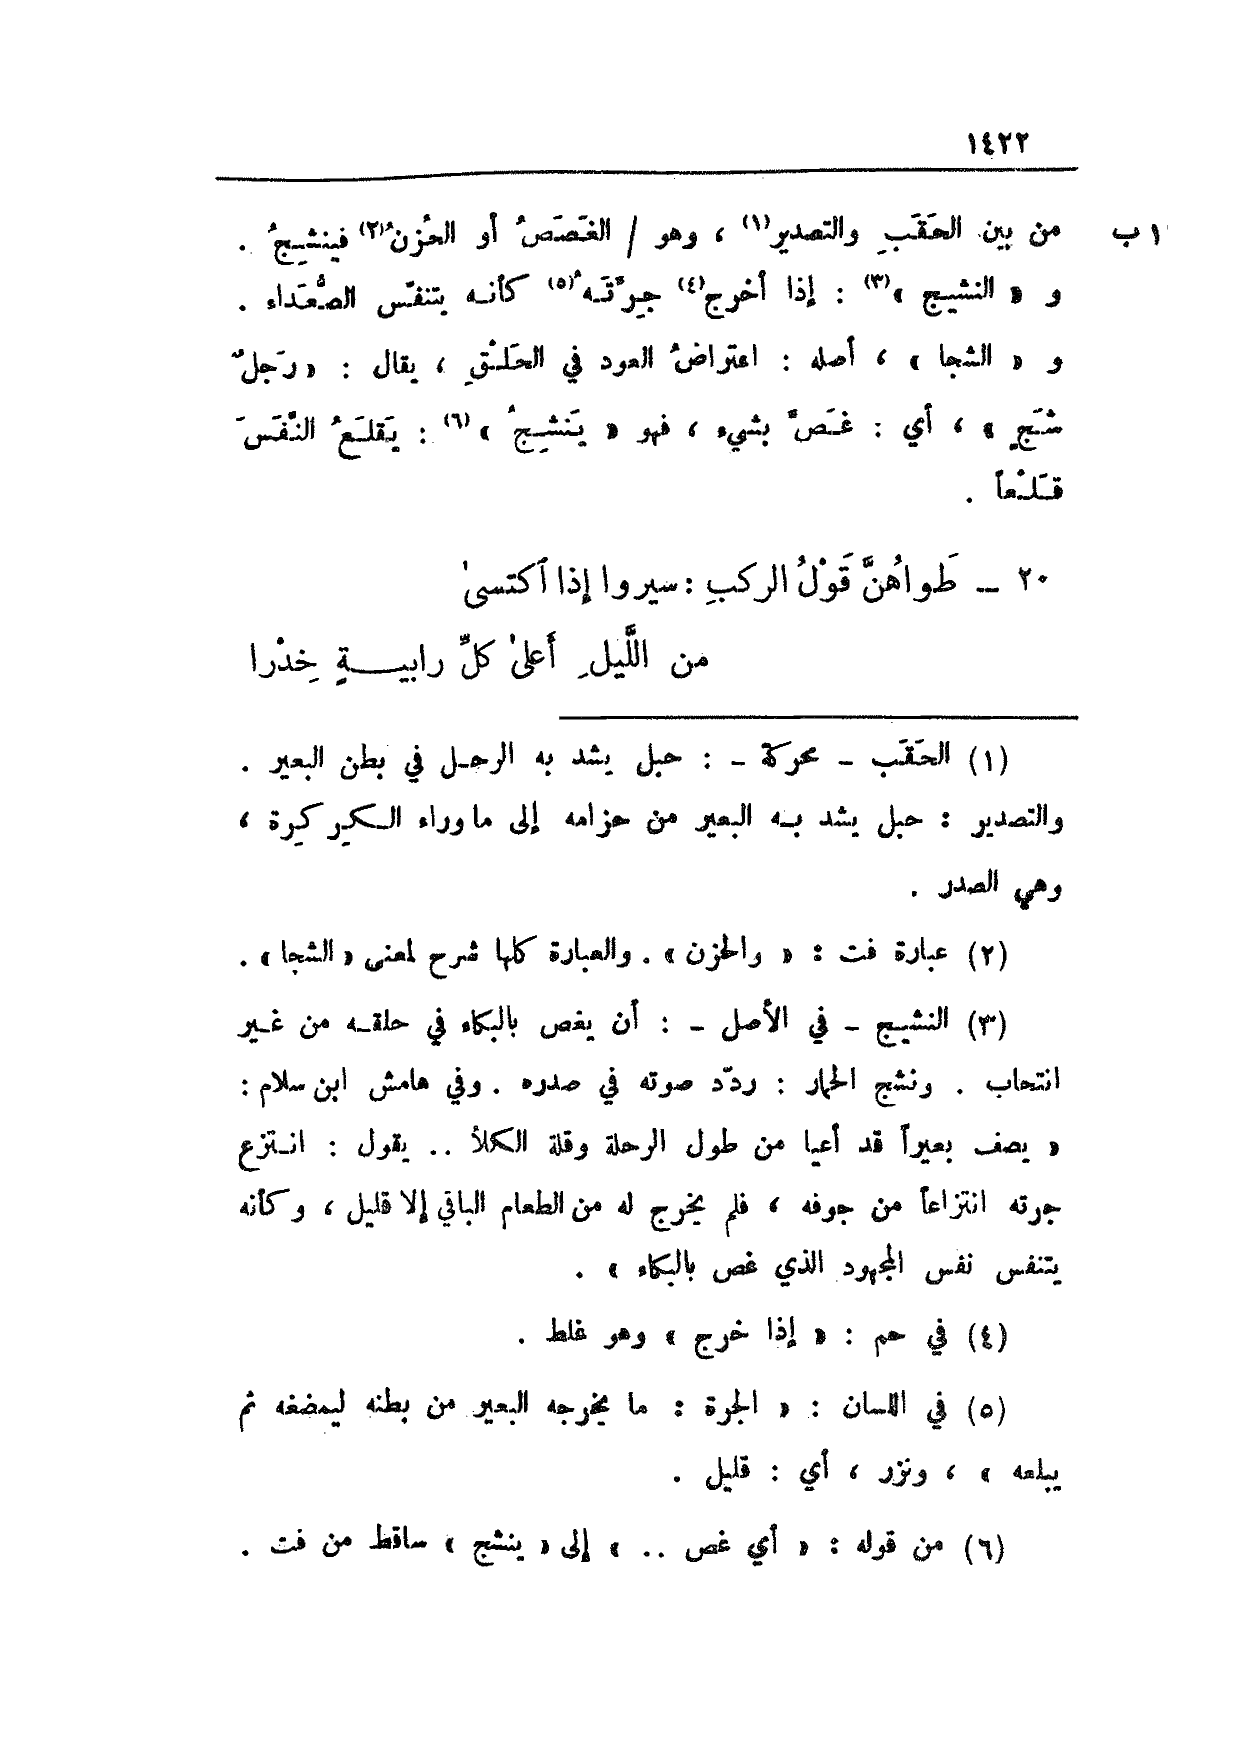 ١٤٢٢
من بين الحَقَبِ والتصدير(١) ، وهو / الغَصَصُ أو الحُزنُ(٢) فينشِجُ . ١ ب
و « النشيج »(٣) : إذا أخرج(٤) جِرَّتَه(٥) كأنه يتنفّس الصُّعَداء .
و « الشجا » ، أصله : اعتراضُ العود في الحَلْقِ ، يقال : « رَجلٌ
شَجٍ » ، أي : غَصَّ بشيء ، فهو « يَنشِجُ »(٦) : يَقلَعُ النَّفَسَ
قَلْعاً .
٢٠ ـ طَواهُنَّ قَوْلُ الركبِ : سيروا إذا ٱكتسىٰ
من اللَّيلِ أَعلىٰ كلِّ رابيـــةٍ خِدْرا
(١) الحَقَب ـ محركة ـ : حبل يشد به الرحل في بطن البعير .
والتصدير : حبل يشد به البعير من حزامه إلى ما وراء الكِركِرة ،
وهي الصدر .
(٢) عبارة فت : « والحزن » . والعبارة كلها شرح لمعنى « الشجا » .
(٣) النشيج ـ في الأصل ـ : أن يغص بالبكاء في حلقه من غير
انتحاب . ونشج الحمار : ردّد صوته في صدره . وفي هامش ابن سلام :
« يصف بعيراً قد أعيا من طول الرحلة وقلة الكلأ .. يقول : انتزع
جرته انتزاعاً من جوفه ، فلم يخرج له من الطعام الباقي إلا قليل ، وكأنه
يتنفس نفس المجهود الذي غص بالبكاء » .
(٤) في حم : « إذا خرج » وهو غلط .
(٥) في اللسان : « الجرة : ما يخرجه البعير من بطنه ليمضغه ثم
يبلعه » ، ونزر ، أي : قليل .
(٦) من قوله : « أي غص .. » إلى « ينشج » ساقط من فت .